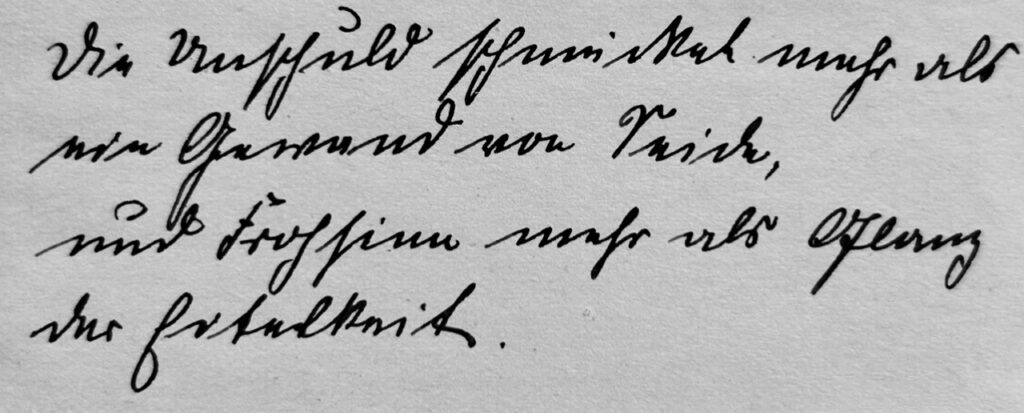 Die Unschuld schmücket mehr als
ein Gewand von Seide,
und Frohsinn mehr als Glanz
der Eitelkeit.